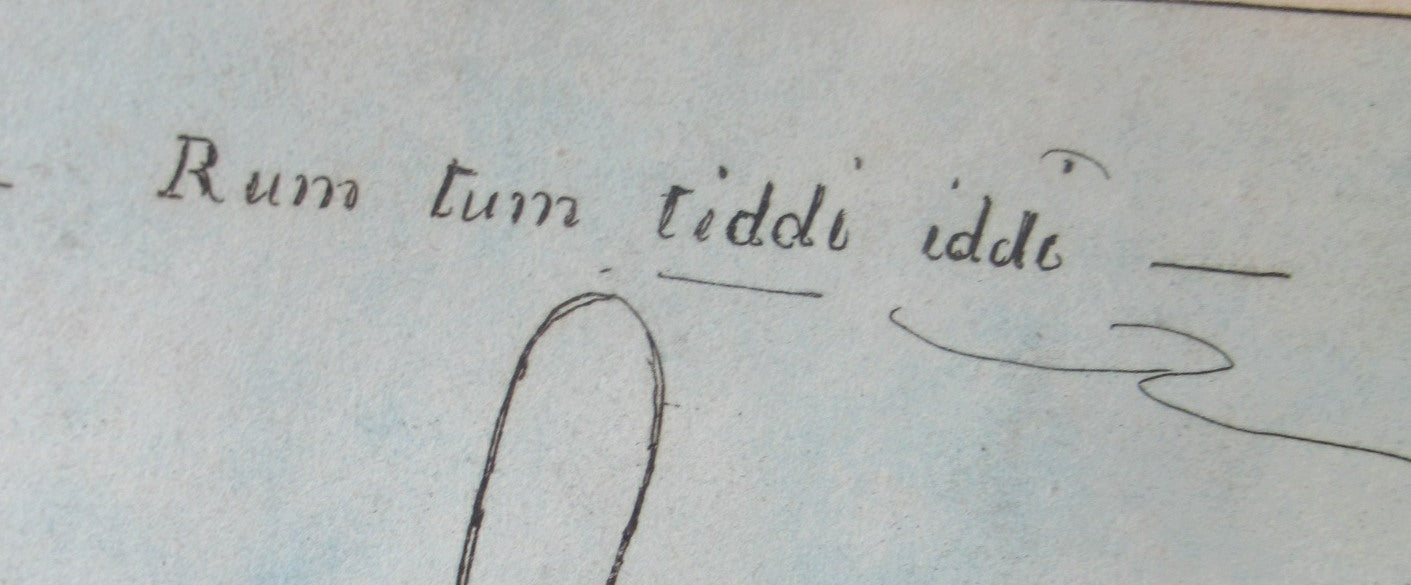 Rum tum tiddi iddi —